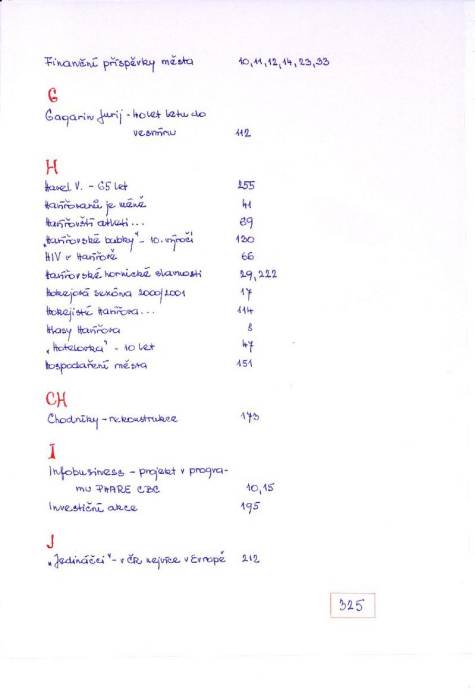 Finanční příspěvky města 10,11,12,14,23,33
G
Gagarin Jurij - 40 let letu do
vesmíru 112
H
Havel V. - 65 let 255
Havířovanů je méně 41
Havířovští atleti... 89
„Havířovské babky" - 10. výročí 130
HIV v Havířově 66
Havířovské hornické slavnosti 29,222
Hokejová sezóna 2000/2001 17
Hokejisté Havířova... 114
Hlasy Havířova 8
„Hotelovka" - 10 let 47
Hospodaření města 151
CH
Chodníky - rekonstrukce 173
I
Infobusiness - projekt v progra-
mu PHARE CBC 10,15
Investiční akce 195
J
„Jedináčci" - v ČR nejvíce v Evropě 212
325